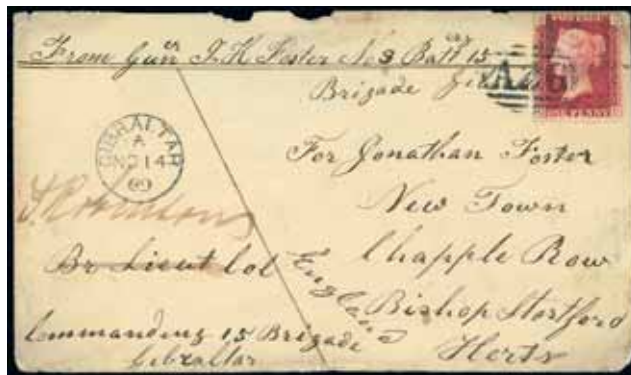 From Gunr J. H. Foster No 3 Batty 15
Brigade
A26
ONE PENNY
GIBRALTAR
A
NO 14
69
For Jonathan Foster
New Town
Chapple Row
Bishop Stortford
Herts
England
Br Lieut Col
Commanding 15 Brigade
Gibraltar